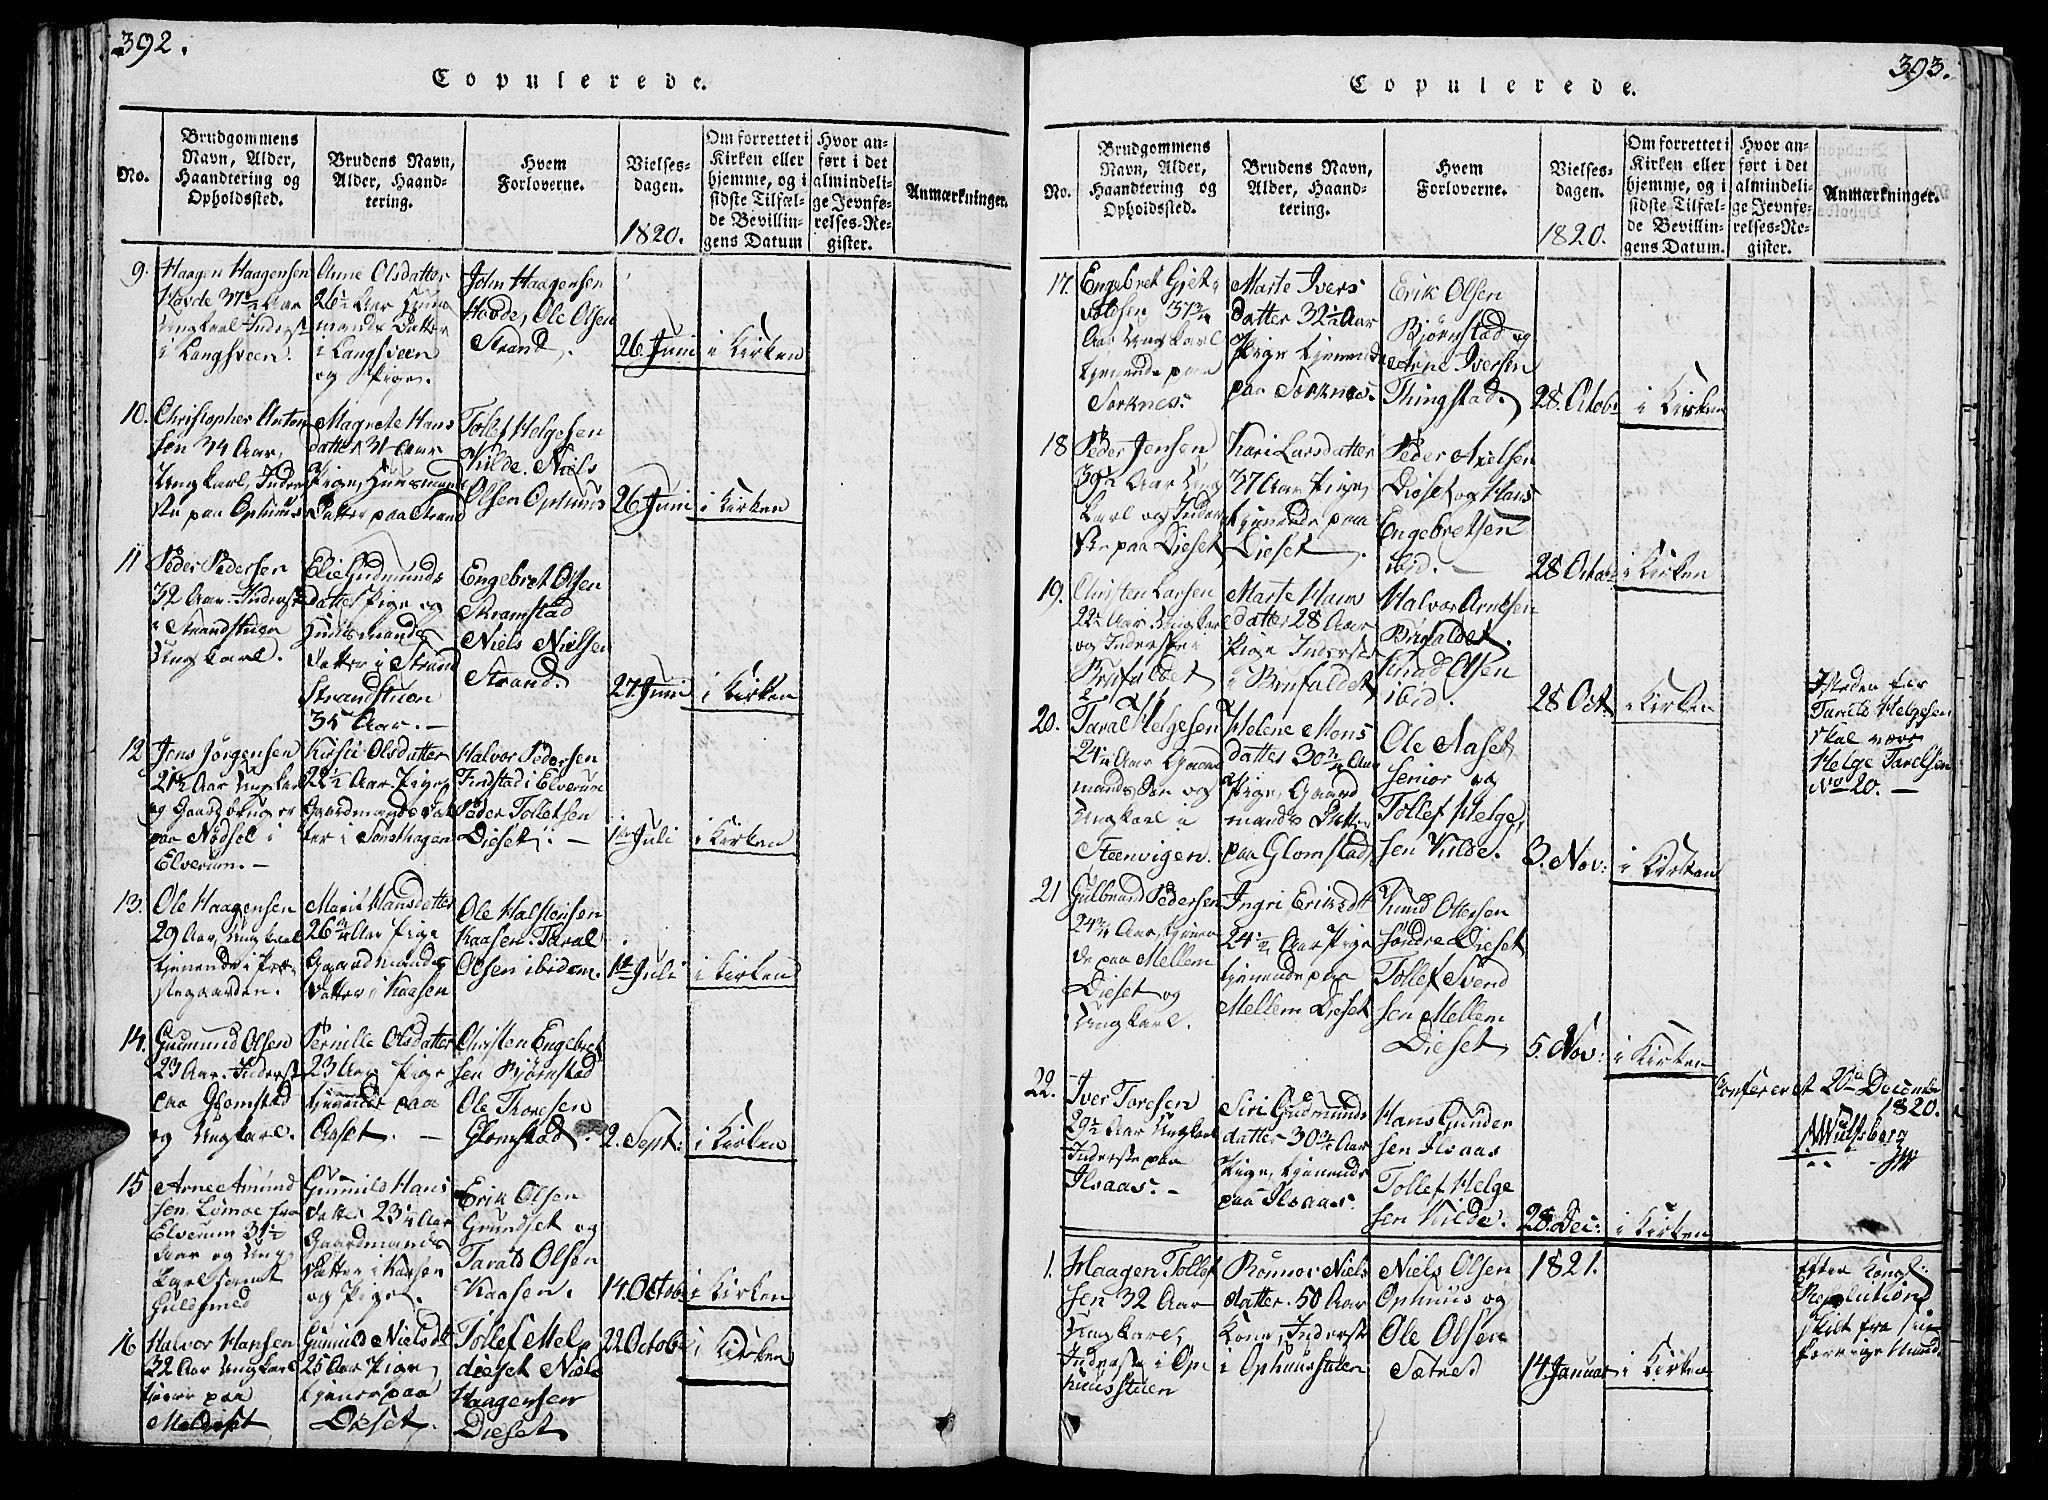 392.
Copulerede.
No.
Brudgommens
Navn, Alder,
Haandtering og
Opholdssted.
Brudens Navn,
Alder, Haand-
tering.
Hvem
Forloverne.
Vielses-
dagen.
1820.
Om forrettet i
Kirken eller
hjemme, og i
sidste Tilfæl-
de Bevillin-
gens Datum
Hvor an-
ført i det
almindeli-
ge Jevnfø-
relses-Re-
gister.
Anmærkninger.
9.
Haagen Haagensen
Hovde 37½ Aar
Ungkarl Inderst
i Langsveen.
Anne Olsdatter
26½ Aar
mands Datter
i Langsveen
og Pige.
John Haagensen
Hovde, Ole Olsen
Strand.
26 Juni
i Kirken
10.
Christopher Anton
sen 34 Aar,
Ungkarl, Inder
ste paa Ophuus
Magnete Hans
datter 31 Aar
Pige, Huusmands
Datter paa Strand
Tollef Helgesen
Kilde. Niels
Olsen Ophuus
26 Juni
i Kirken
11
Peder Pedersen
32 Aar Inderst
i Strandstuen
Ungkarl.
Elie Gudmunds
datter Pige og
Huusmands
Datter i Strand
Strandstuen
35 Aar. —
Engebret Olsen
Skramstad
Niels Nielsen
Strand.
27 Juni
i Kirken
12
Jens Jørgensen
21¾ Aar Ungkarl
og Gaardbruger
paa Nødset i
Elverum. —
Kirstie Olsdatter
22½ Aar Pige
Gaardmands Dat
ter i Sønsthagen
Halvor Pedersen
Findstad i Elverum
Peder Tollefsen
Dieset. —
1ste Juli
i Kirken
13.
Ole Haagensen
29 Aar, Ungkarl
tjenende i Præ
stegaarden.
Marit Hansdatter
26¾ Aar Pige
Gaardmands
Datter i Kaasen
Ole Halstensen
Kaasen. Taral
Olsen ibidem.
1ste Juli
i Kirken
14.
Gudmund Olsen
23 Aar. Inderst
paa Glomstad
og Ungkarl.
Pernille Olsdatter
23 Aar Pige
tjenende paa
Aaset. —
Christen Engebret
sen Bjørnstad
Ole Thoresen
Glomstad.
2. Sept:
i Kirken
15
Arne Amund
sen Lømoe fra
Elverum 31½
Aar og Ung
karl samt
Huldsmed
Gunnild Hans
datter 23¼ Aar
Gaardmands
Datter i Kaasen
og Pige.
Erik Olsen
Grundset og
Tarald Olsen
Kaasen.
14. Octobr
i Kirken
16
Halvor Hansen
32 Aar Ungkarl
tjener paa
Meldiset
Gunild Nielsdtr
25 Aar Pige
tjener paa
Dieset.
Tollef Mel
dieset Niels
Haagensen
Dieset
22 Octobr
i Kirken
393.
Copulerede.
No.
Brudgommens
Navn, Alder,
Haandtering og
Opholdssted.
Brudens Navn,
Alder, Haand-
tering.
Hvem
Forloverne.
Vielses-
dagen.
1820.
Om forrettet i
Kirken eller
hjemme, og i
sidste Tilfæl-
de Bevillin-
gens Datum.
Hvor an-
ført i det
almindeli-
ge Jevnfø-
relses-Re-
gister.
Anmærkninger.
17.
Engebret Gjet
voldsen 37¾
Aar Ungkarl
tjenende paa
Sorknes.
Marte Ivers
datter 32½ Aar
Pige tjenende
paa Sorknes.
Erik Olsen
Bjørnstad og
Arne Iversen
Thingstad.
28. Octobr
i Kirken
18
Peder Jensen
39½ Aar Ung
karl og Inder
ste paa Dieset
Kari Larsdatter
37 Aar Pige
tjenende paa
Dieset.
Peder Axelsen
Dieset og Hans
Engebretsen
ibid. —
28 Octobr
i Kirken
19.
Christen Larsen
22½ Aar Ungkarl
og Inderste i
Brufaldet
Marte Hans
datter 28 Aar
Pige Inderst
i Brufaldet
Halvor Arnesen
Brufaldet.
Knud Olsen
ibid.
28 Oct.
i Kirken
20.
Taral Helgesen
24½ Aar Gaard
mands Søn og
Ungkarl i
Steenvigen.
Helene Mons
datter 30¾ Aar
Pige, Gaard
mands Datter
paa Glomstad
Ole Aaset
senior og
Tollef Helge
sen Kilde.
3. Nov:
i Kirken
Isteden for
Tarald Helgesen
skal være
Helge Taralsen
No 20. —
21
Gulbrand Pedersen
24¾ Aar, tjenen
de paa Mellem
Dieset og
Ungkarl.
Ingri Eriksdtr
24½ Aar Pige
tjenende paa
Mellem Dieset
Knud Ottersen
Søndre Dieset
Tollef Svend
sen Mellem
Dieset
5. Nov:
i Kirken
22.
Iver Toresen
29½ Aar Ungkarl
Inderste paa
Ilsaas. —
Siri Gudmunds
datter 30¾ Aar
Pige, tjenende
paa Ilsaas.
Hans Gunder
sen Ilsaas
Tollef Helge
sen Kilde.
28. Dec:
i Kirken
Confereret 20de December
1820.
Wulfsberg
1.
Haagen Tollef
sen 32 Aar
Ungkarl,
Inderste i Op
huusstuen
Ronnov Niels
datter. 50 Aar
Kone, Inderst
i Ophuusstuen
Niels Olsen
Ophuus og
Ole Olsen
Sætred
1821.
14. Januar
i Kirken
efter Kongl:
Resolution
skilt fra sin
forrige Mand.